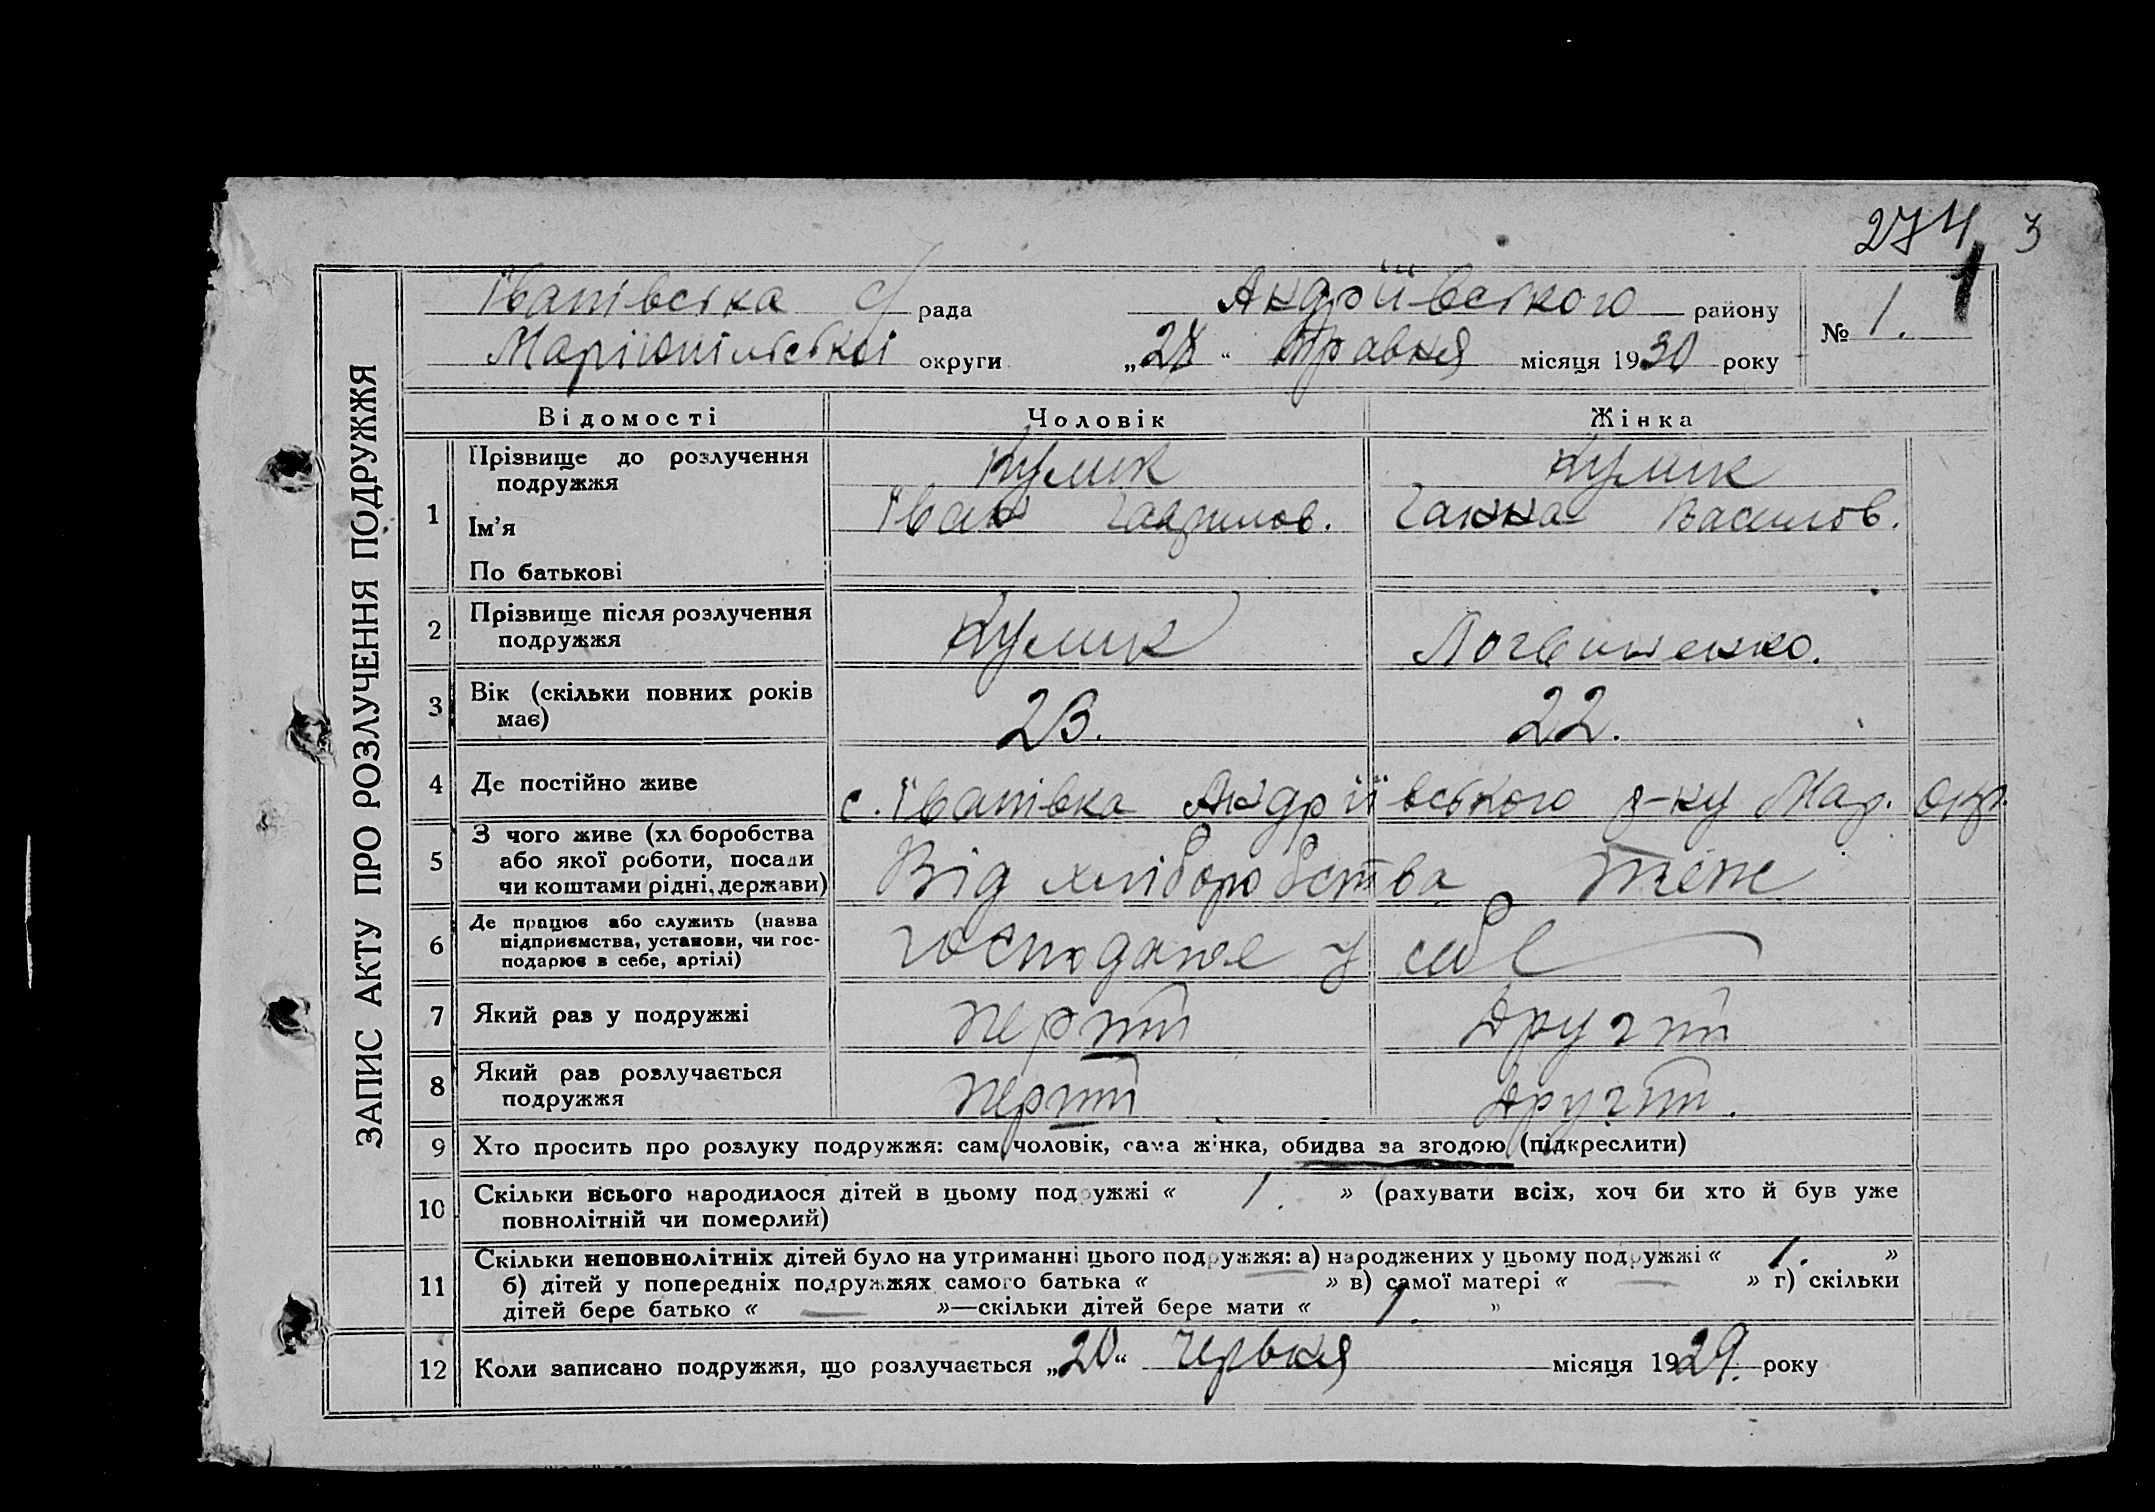 274 3
1
ЗАПИС АКТУ ПРО РОЗЛУЧЕННЯ ПОДРУЖЖЯ
Іванівська с/рада Андріївського району
Маріюпільської округи „28“ травня місяця 1930 року
№ 1.
Відомості Чоловік Жінка
1 Прізвище до розлучення подружжя Кулик Кулик
Ім'я Іван Гаврилов. Ганна Василов.
По батькові
2 Прізвище після розлучення подружжя Кулик Логвиненко.
3 Вік (скільки повних років має) 23. 22.
4 Де постійно живе с. Іванівка Андріївського р-ку Мар. окр.
5 З чого живе (хліборобства або якої роботи, посади чи коштами рідні, держави) Від хліборобства теж
6 Де працює або служить (назва підприємства, установи, чи господарює в себе, артілі) у себе
7 Який раз у подружжі перший Другий
8 Який раз розлучається подружжя перший Другий.
9 Хто просить про розлуку подружжя: сам чоловік, сама жінка, обидва за згодою (підкреслити)
10 Скільки всього народилося дітей в цьому подружжі « 1. » (рахувати всіх, хоч би хто й був уже
повнолітній чи померлий)
11 Скільки неповнолітніх дітей було на утриманні цього подружжя: а) народжених у цьому подружжі « 1. »
б) дітей у попередніх подружжях самого батька « » в) самої матері « — » г) скільки
дітей бере батько « — »—скільки дітей бере мати « 1. »
12 Коли записано подружжя, що розлучається „20“ червня місяця 1929. року